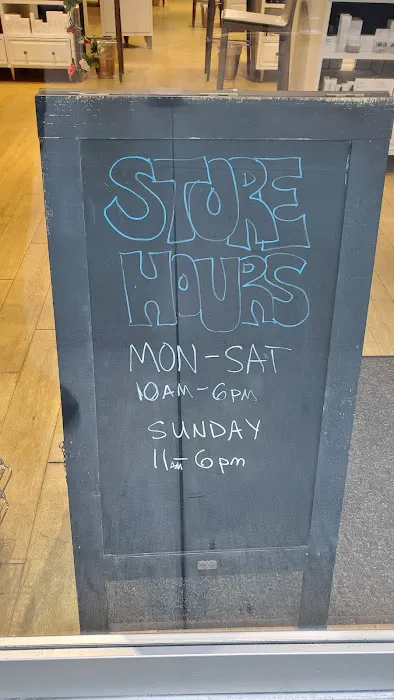 STORE
HOURS
MON-SAT
10AM-6PM
SUNDAY
11AM-6pm